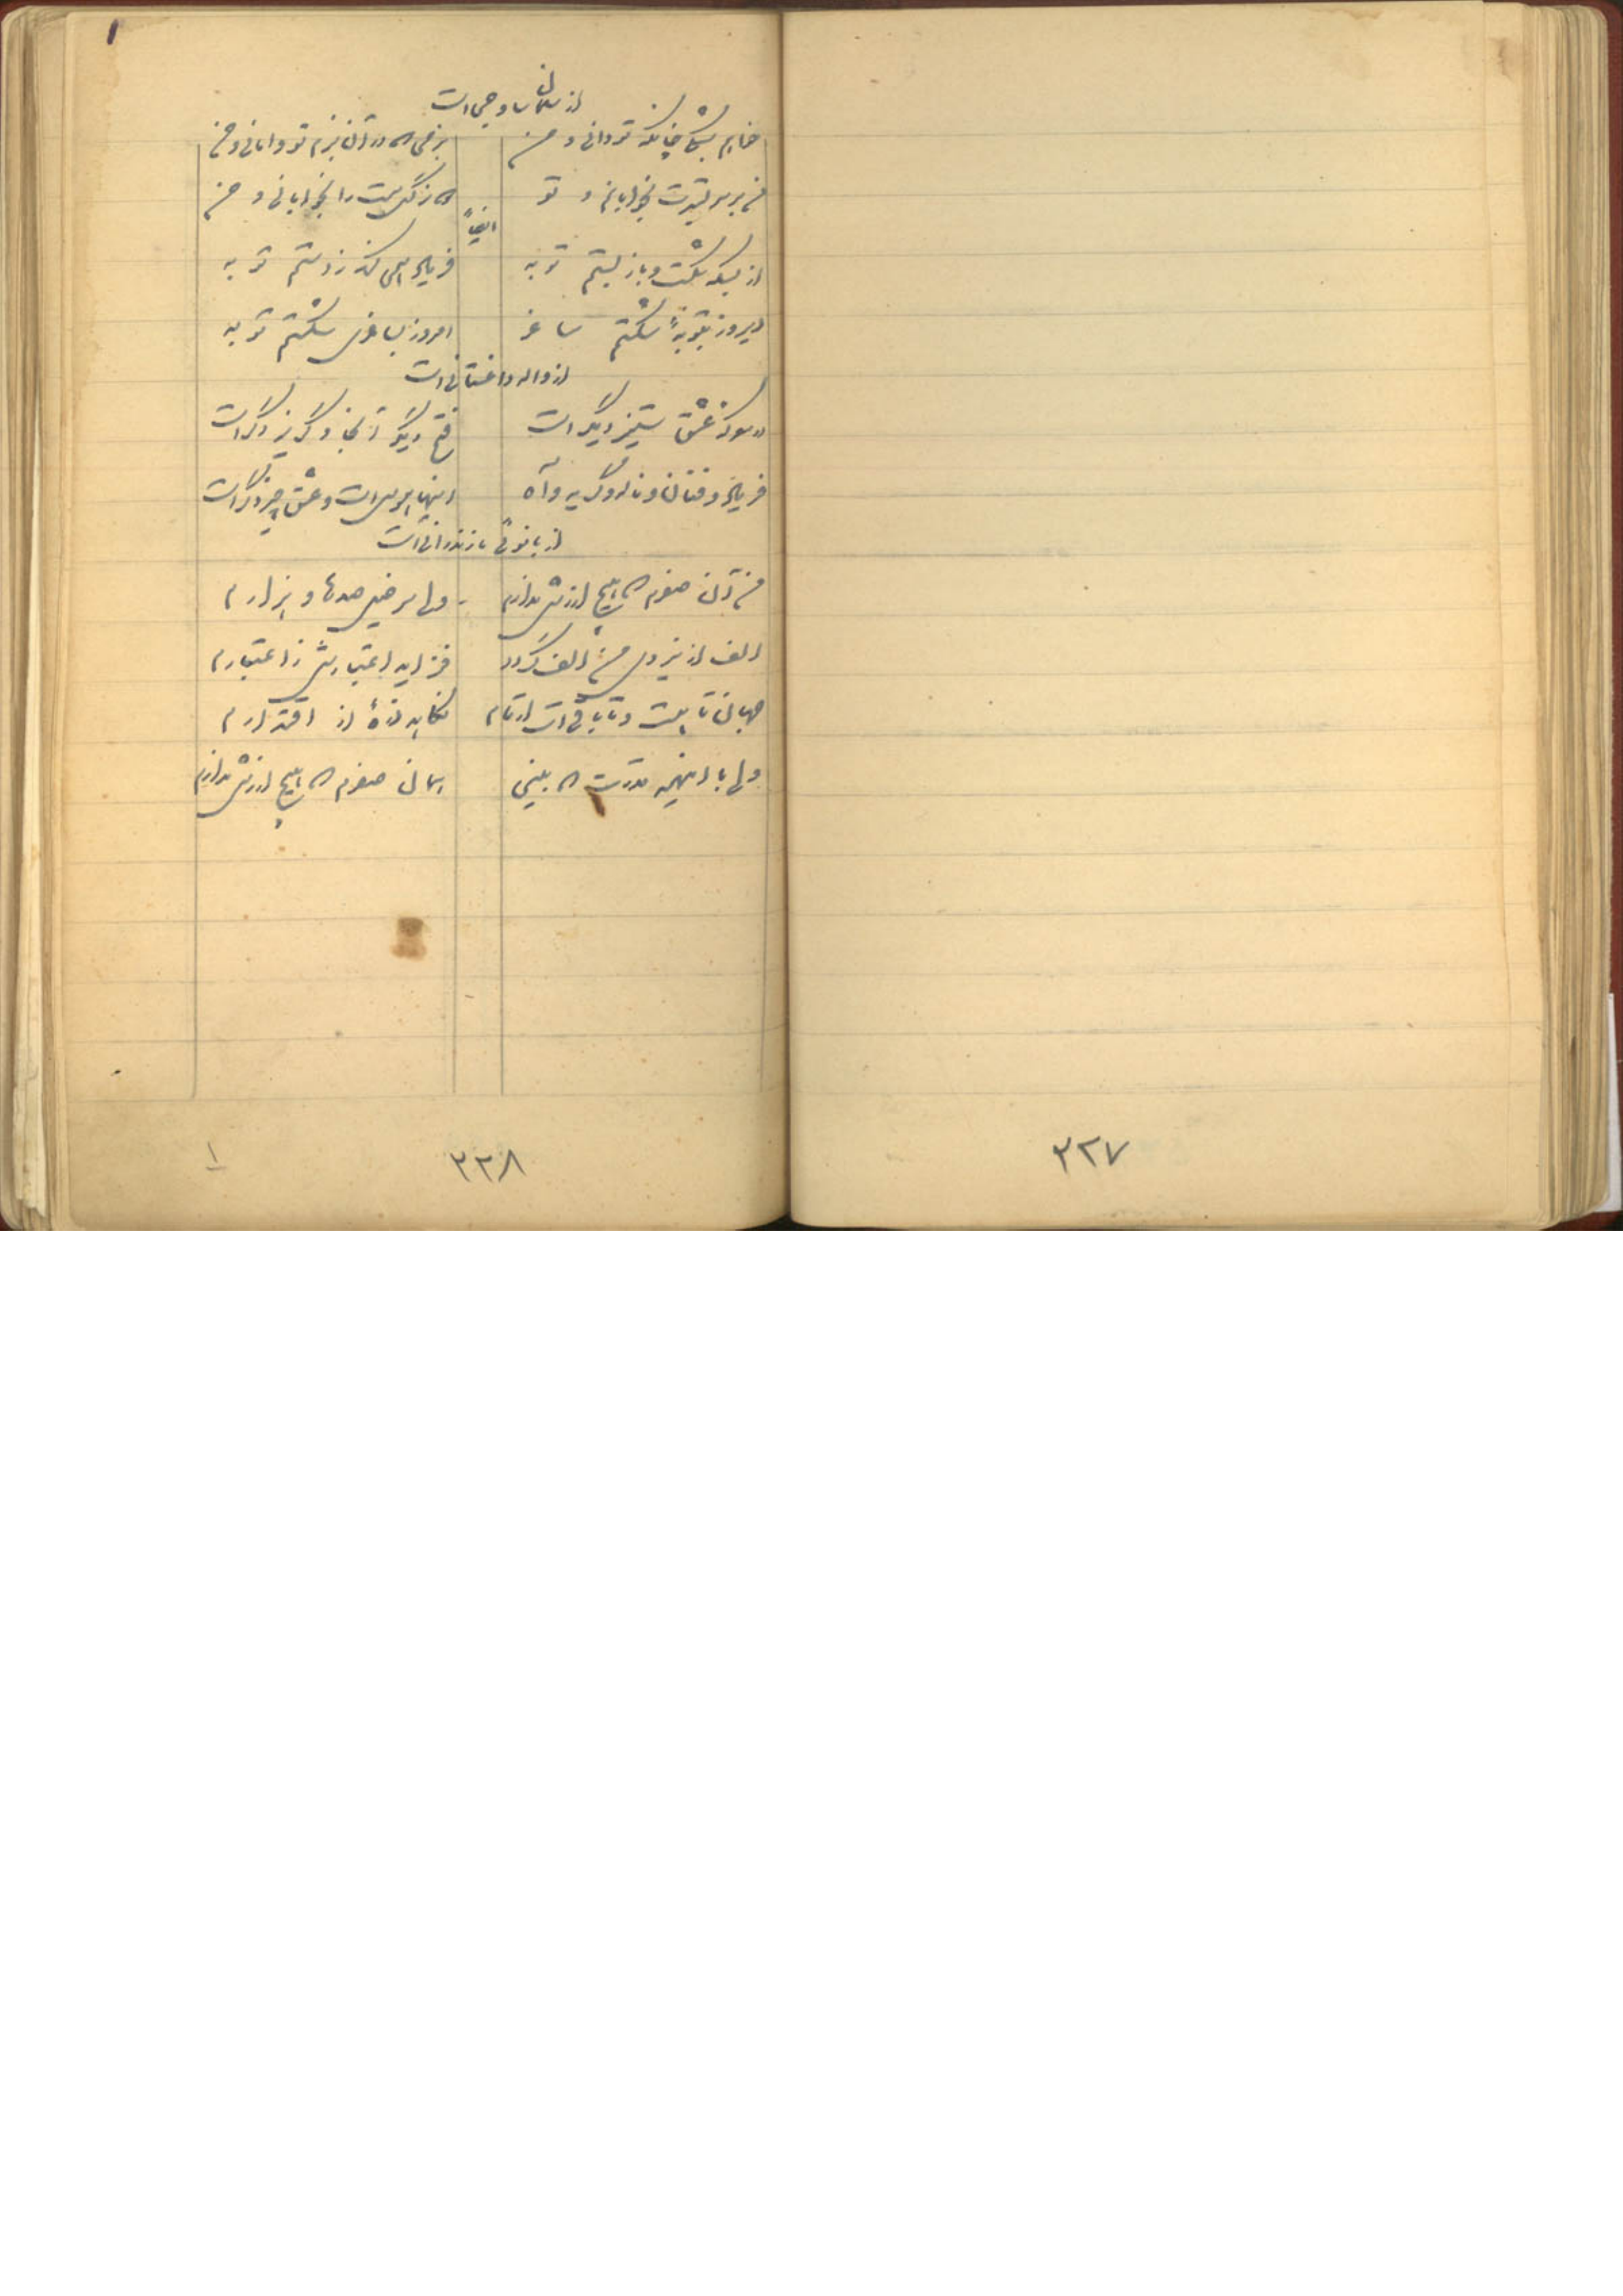 ۱
از سلمان ساوجی است
خواهم شبکی چنانکه تو دانی و من
بزمی که در آن بزم تو وامانی و من
من بر سر بسترت بخوابانم و تو
آن نرگس مست را بخوابانی و من
ایضاً
از بسکه شکست و باز بستم توبه
فریاد همی کند ز دستم توبه
دیروز بتوبهٔ شکستم ساغر
امروز بساغری شکستم توبه
از واله داغستانی است
در معرکهٔ عشق ستیز دیگر است
فتح دیگر آنجا و گریز دگر است
فریاد و فغان و ناله و گریه و آه
اینها هوس است و عشق چیز دگر است
از بانوی مازندرانی است
من آن صفرم که هیچ ارزش ندارم
الف از نیروی من الف گردد
فزاید اعتبارش ز اعتبارم
جهان تا هست و تا باقی است ارقام
نکاهد ذرهٔ از اقتدارم
ولی با اینهمه قدرت که بینی
همان صفرم که هیچ ارزش ندارم
۳۲۷
۳۲۸
۱